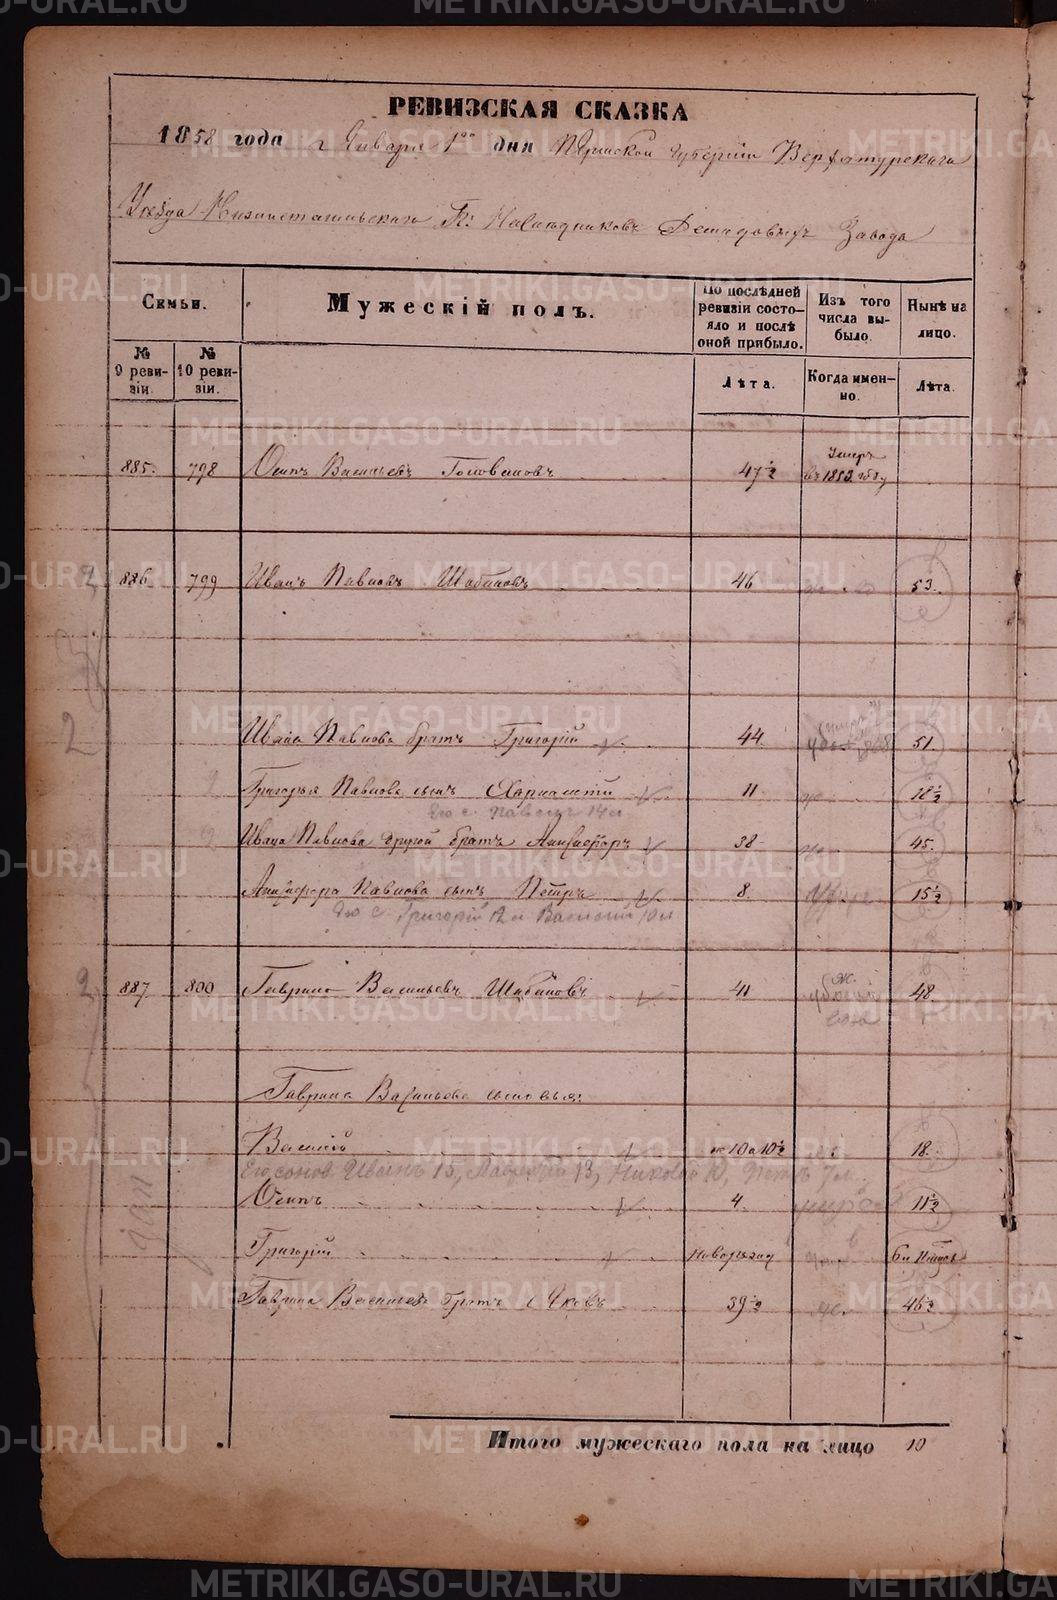 РЕВИЗСКАЯ СКАЗКА
1858 года Января 1го дня Пермской Губернiи Верхотурскаго
Уезда Нижнетагильскаго Гг. Наследниковъ Демидовыхъ Завода
Семьи.
Мужескiй полъ.
По послѣдней ревизiи состояло и послѣ оной прибыло.
Изъ того числа выбыло.
Нынѣ на лицо.
№ 9 ревизiи.
№ 10 ревизiи.
Лѣта.
Когда именно.
Лѣта.
885. 798 Осипъ Васильевъ Головановъ 47½ Умеръ въ 1853 году
886 799 Иванъ Павловъ Шабановъ 46 53.
2
Ивана Павлова братъ Григорiй 44. 51
Григорья Павлова сынъ 11 18½
Его с. Павелъ 14 л
Ивана Павлова другой братъ 38 45.
Павлова сынъ Петръ 8. 15½
Его с. Григорiй 12 и Василiй 10 л
887 800 Гаврило Васильевъ Шабановъ 41 48
Гаврила Васильева сыновья:
Василiй 10½ 18.
Его сынов. Иванъ 15, 13, Николай 10, Петръ 7 л.
Осипъ 4. 11½
Григорiй новорожд 6
Гаврила Васильева братъ Яковъ 39½ 46½
Итого мужескаго пола на лицо 10
METRIKI.GASO-URAL.RU